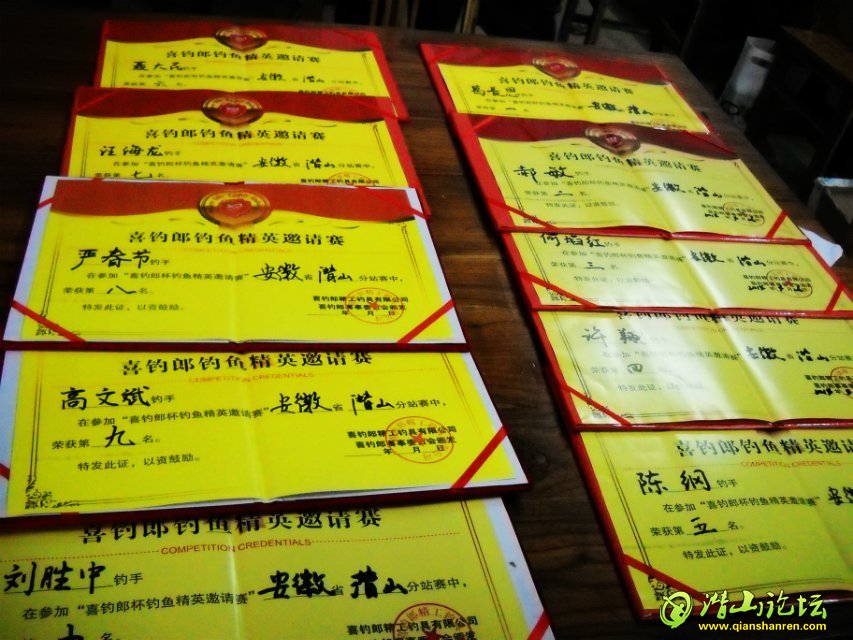 喜钓郎钓鱼精英邀请赛
聂大民钓手
在参加“喜钓郎杯钓鱼精英邀请赛”安徽省潜山分站赛中,
荣获第六名。
喜钓郎钓鱼精英邀请赛
汪海龙钓手
在参加“喜钓郎杯钓鱼精英邀请赛”安徽省潜山分站赛中,
荣获第七名。
喜钓郎钓鱼精英邀请赛
严春节钓手
在参加“喜钓郎杯钓鱼精英邀请赛”安徽省潜山分站赛中,
荣获第八名。
特发此证,以资鼓励。
喜钓郎精工钓具有限公司
喜钓郎赛事委员会颁发
年 月 日
喜钓郎钓鱼精英邀请赛
COMPETITION CREDENTIALS
高文斌钓手
在参加“喜钓郎杯钓鱼精英邀请赛”安徽省潜山分站赛中,
荣获第九名。
特发此证,以资鼓励。
喜钓郎精工钓具有限公司
喜钓郎赛事委员会颁发
年 月 日
喜钓郎钓鱼精英邀请赛
COMPETITION CREDENTIALS
刘胜中钓手
在参加“喜钓郎杯钓鱼精英邀请赛”安徽省潜山分站赛中,
喜钓郎精工钓具有限公司
喜钓郎钓鱼精英邀请赛
钓手
在参加“喜钓郎杯钓鱼精英邀请赛”安徽省潜山
荣获第一名。
喜钓郎钓鱼精英邀请赛
郝敏钓手
在参加“喜钓郎杯钓鱼精英邀请赛”安徽省潜山分站赛中,
荣获第二名。
特发此证,以资鼓励。
钓手
安徽省潜山分站赛中,
荣获第三名。
特发此证,以资鼓励。
喜钓郎钓鱼精英邀请赛
许翔钓手
在参加“喜钓郎杯钓鱼精英邀请赛”安徽省潜山分站赛
荣获第四名。
特发此证,以资鼓励。
喜钓郎钓鱼精英邀请
COMPETITION CREDENTIALS
陈纲钓手
在参加“喜钓郎杯钓鱼精英邀请赛”安
荣获第五名。
特发此证,以资鼓励。
潜山论坛
www.qianshanren.com